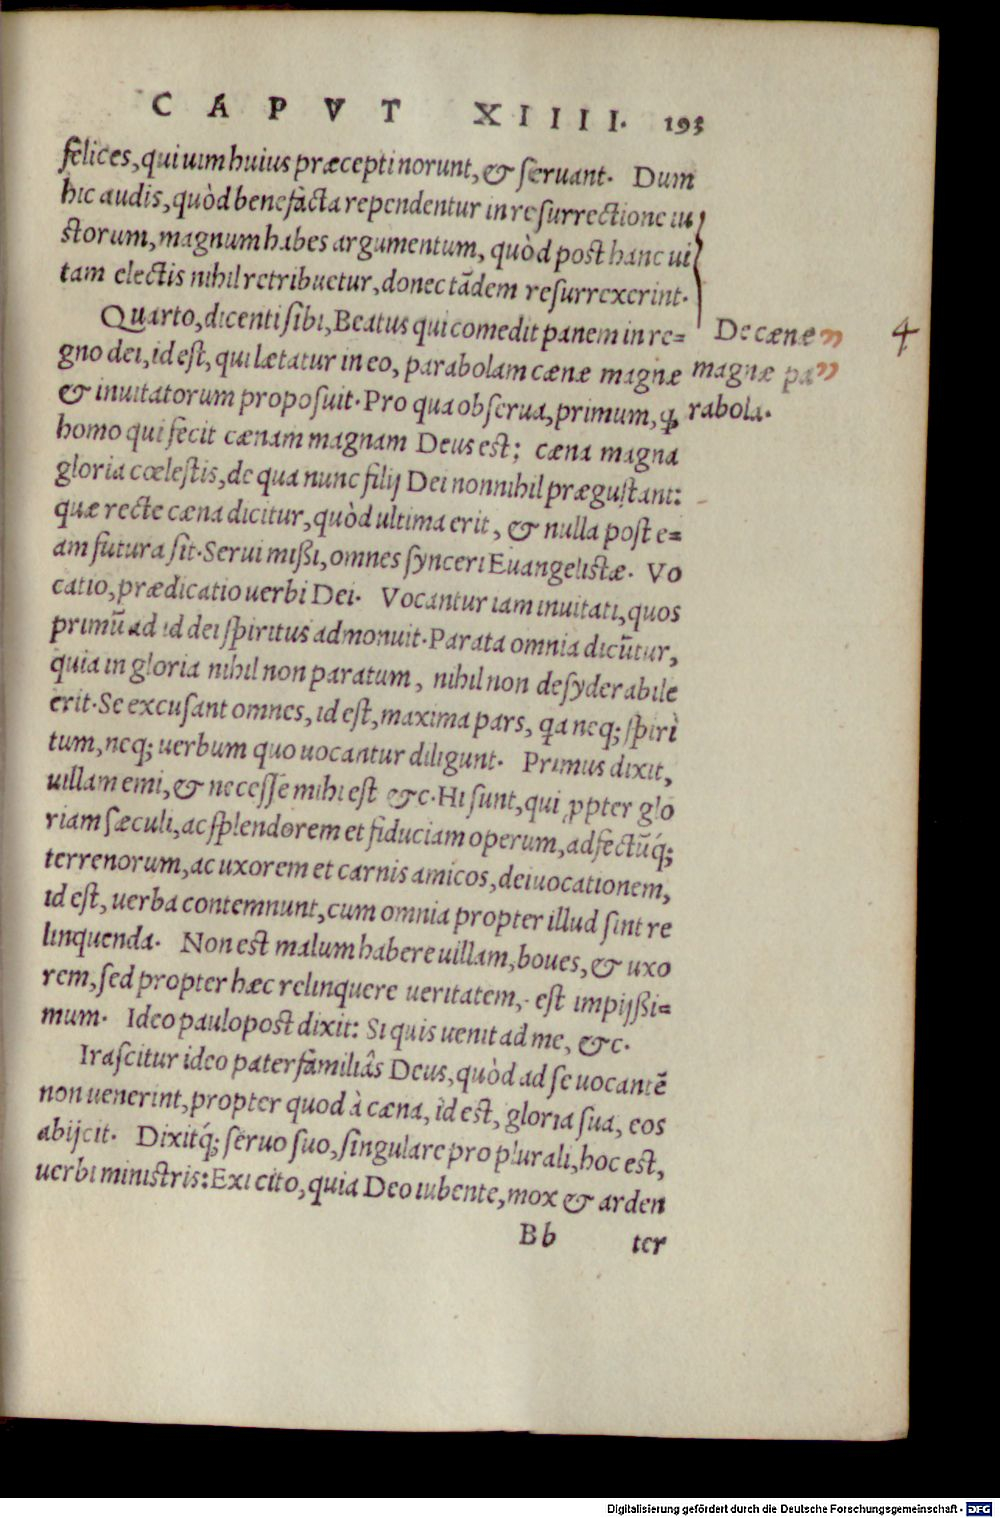 CAPVT XIIII. 193
felices, qui uim huius præcepti norunt, & seruant. Dum
hic audis, quòd benefacta rependentur in resurrectione iu
storum, magnum habes argumentum, quòd post hanc ui
tam electis nihil retribuetur, donec tādem resurrexerint.
Quarto, dicenti sibi, Beatus qui comedit panem in re=
gno dei, id est, qui lætatur in eo, parabolam cænæ magnæ
& inuitatorum proposuit. Pro qua obserua, primum, ꝙ
homo qui fecit cænam magnam Deus est: cæna magna
gloria cœlestis, de qua nunc filij Dei nonnihil prægustant:
quæ recte cæna dicitur, quòd ultima erit, & nulla post e=
am futura sit. Serui mißi, omnes synceri Euangelistæ. Vo
catio, prædicatio uerbi Dei. Vocantur iam inuitati, quos
primū ad id dei spiritus admonuit. Parata omnia dicūtur,
quia in gloria nihil non paratum, nihil non desyderabile
erit. Se excusant omnes, id est, maxima pars, qa neq; spiri
tum, neq; uerbum quo uocantur diligunt. Primus dixit,
uillam emi, & necesse mihi est &c. Hi sunt, qui ꝓpter glo
riam sæculi, ac splendorem et fiduciam operum, adfectūq́;
terrenorum, ac uxorem et carnis amicos, dei uocationem,
id est, uerba contemnunt, cum omnia propter illud sint re
linquenda. Non est malum habere uillam, boues, & uxo
rem, sed propter hæc relinquere ueritatem, est impijßi=
mum. Ideo paulopost dixit: Si quis uenit ad me, &c.
Irascitur ideo paterfamiliâs Deus, quòd ad se uocantē
non uenerint, propter quod à cæna, id est, gloria sua, eos
abijcit. Dixitq́; seruo suo, singulare pro plurali, hoc est,
uerbi ministris: Exi cito, quia Deo iubente, mox & arden
Bb ter
De cænæ
magnæ pa
rabola.
4
Digitalisierung gefördert durch die Deutsche Forschungsgemeinschaft - DFG